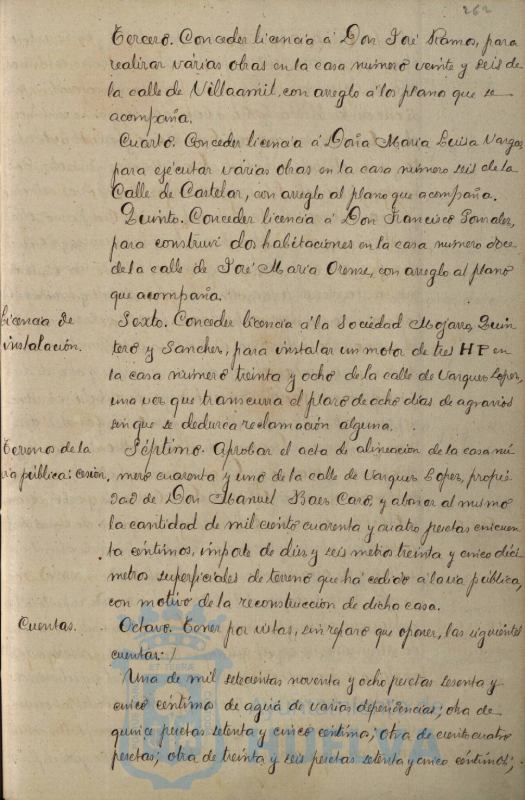 262
Tercero. Conceder licencia á Don José Ramos, para
realizar várias obras en la casa número veinte y seis de
la calle de Villaamil, con arreglo á los plano que se
acompaña.
Cuarto. Conceder licencia á Doña Maria Luisa Vargas,
para ejecutar várias obras en la casa número seis de la
Calle de Castelar, con arreglo al plano que acompaña.
Quinto. Conceder licencia á Don Francisco Ponzalez,
para construir dos habitaciones en la casa número doce
de la calle de José Maria Orense, con arreglo al plano
que acompaña.
Licencia de
instalación.
Sexto. Conceder licencia á la Sociedad Mojarro, Quin-
tero y Sanchez, para instalar un motor de tres HP en
la casa número treinta y ocho de la calle de Vazquez Lopez,
una vez que transcurra el plazo de ocho días de agravios
sin que se deduzca reclamación alguna.
Terreno de la
vía pública: cesión.
Séptimo. Aprobar el acta de alineación de la casa nú-
mero cuarenta y uno de la calle de Vazquez Lopez, propie-
dad de Don Manuel Baez Caro, y abonar al mismo
la cantidad de mil ciento cuarenta y cuatro pesetas cincuen-
ta céntimos, importe de diez y seis metros treinta y cinco decí-
metros superficiales de terreno que há cedido á la vía pública,
con motivo de la reconstrucción de dicha casa.
Cuentas.
Octavo. Tener por vistas, sin reparo que oponer, las siguientes
cuentas:
Una de mil setecientas noventa y ocho pesetas sesenta y
cinco céntimos de agua de varias dependencias; otra de
quince pesetas setenta y cinco céntimos; otra de ciento cuatro
pesetas; otra de treinta y seis pesetas setenta y cinco céntimos;
HUELVA